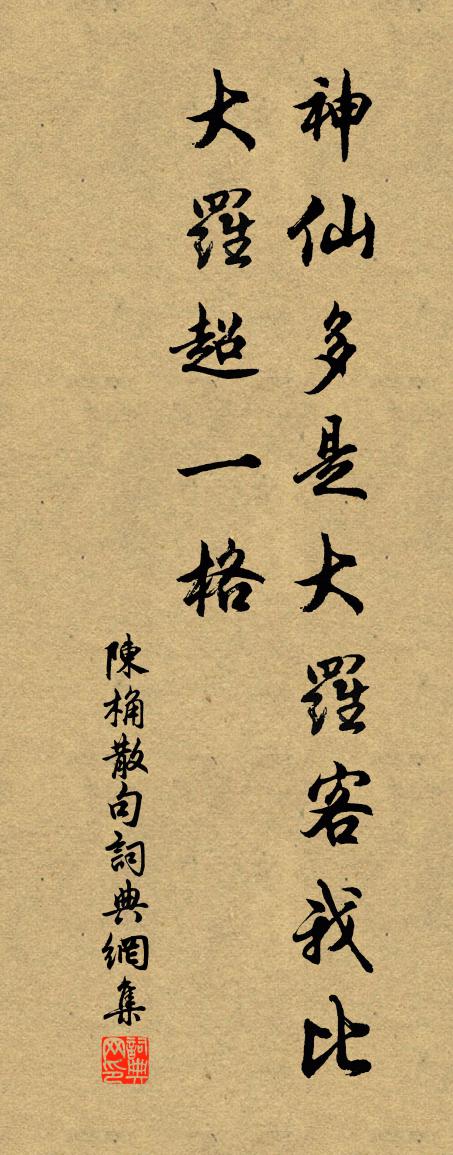 神仙多是大羅客我比
大羅超一格
陳桷散句詞典網集
詞典网印